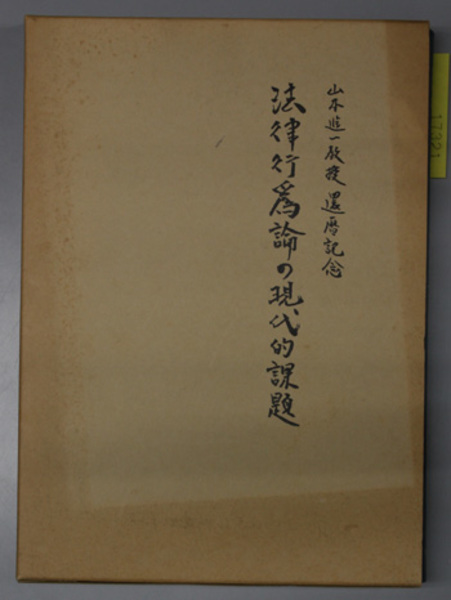 山本進一教授 還暦記念
法律行為論の現代的課題
17321